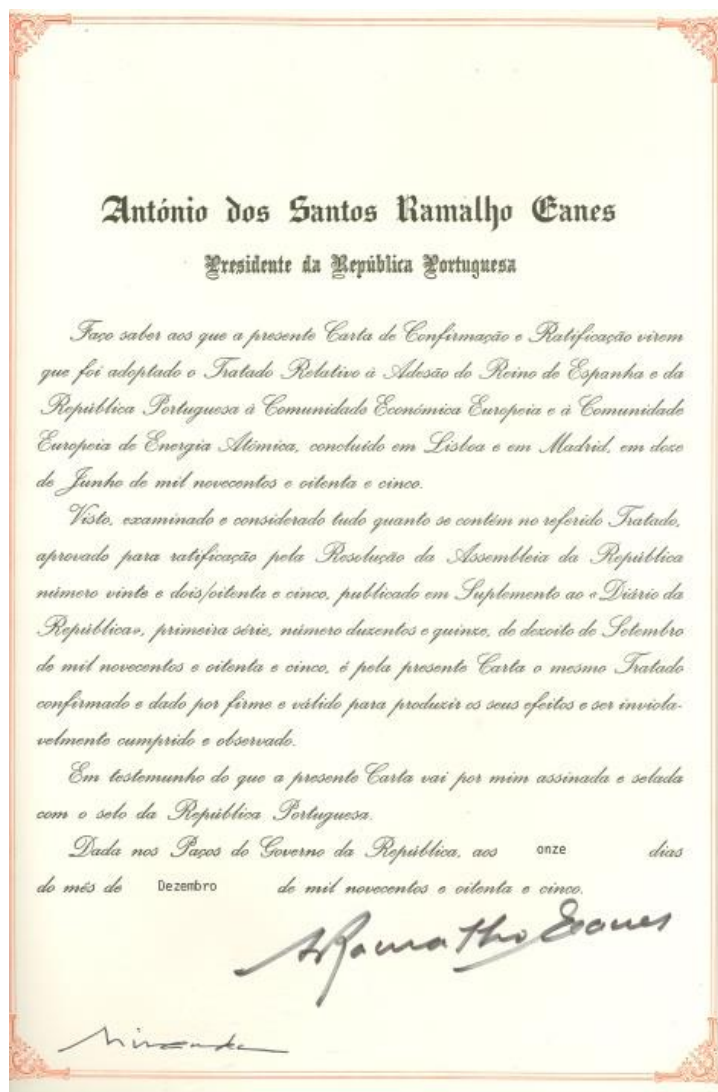 António dos Santos Ramalho Eanes
Presidente da República Portuguesa
Faço saber aos que a presente Carta de Confirmação e Ratificação virem
que foi adoptado o Tratado Relativo à Adesão do Reino de Espanha e da
República Portuguesa à Comunidade Económica Europeia e à Comunidade
Europeia de Energia Atómica, concluído em Lisboa e em Madrid, em doze
de Junho de mil novecentos e oitenta e cinco.
Visto, examinado e considerado tudo quanto se contém no referido Tratado,
aprovado para ratificação pela Resolução da Assembleia da República
número vinte e dois/oitenta e cinco, publicado em Suplemento ao «Diário da
República», primeira série, número duzentos e quinze, de dezoito de Setembro
de mil novecentos e oitenta e cinco, é pela presente Carta o mesmo Tratado
confirmado e dado por firme e válido para produzir os seus efeitos e ser inviola-
velmente cumprido e observado.
Em testemunho do que a presente Carta vai por mim assinada e selada
com o selo da República Portuguesa.
Dada nos Paços do Governo da República, aos onze dias
do mês de Dezembro de mil novecentos e oitenta e cinco.
ARamalho Eanes